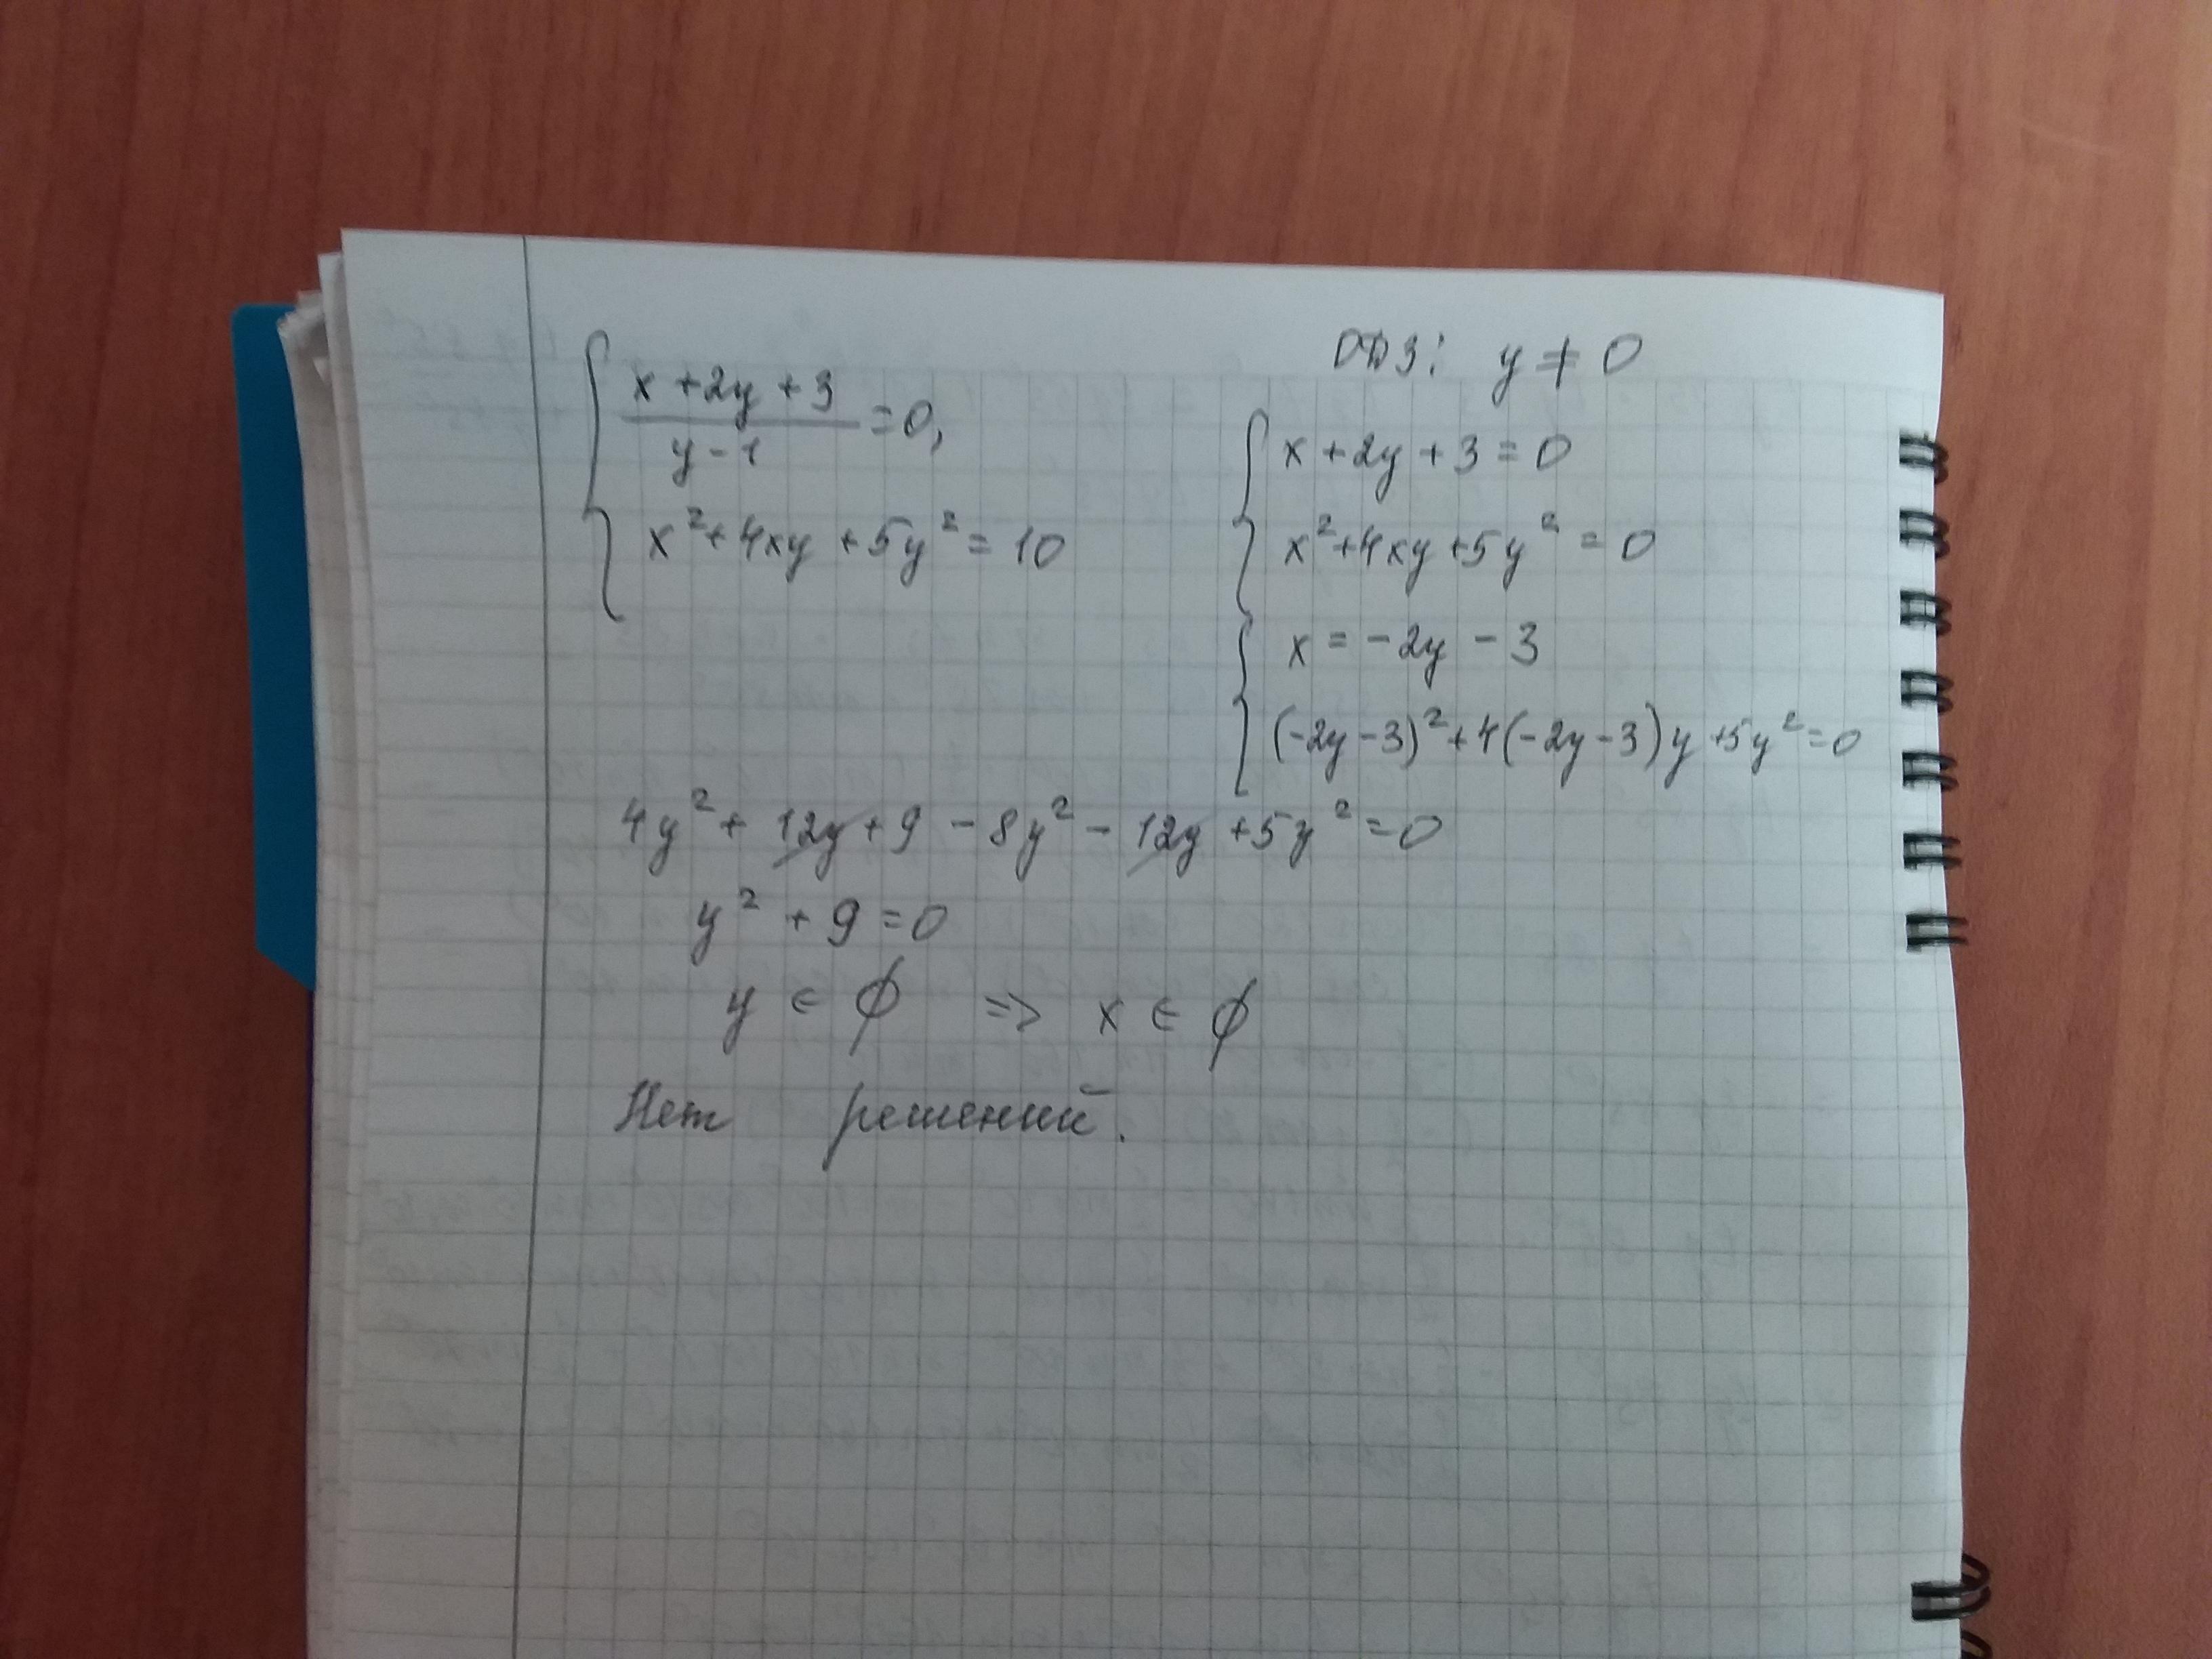 x + 2y + 3
y - 1
= 0,
x² + 4xy + 5y² = 10
ОДЗ: y ≠ 0
x + 2y + 3 = 0
x² + 4xy + 5y² = 0
x = -2y - 3
(-2y - 3)² + 4(-2y - 3)y + 5y² = 0
4y² + 12y + 9 - 8y² - 12y + 5y² = 0
y² + 9 = 0
y ∈ ∅ => x ∈ ∅
Нет решений.